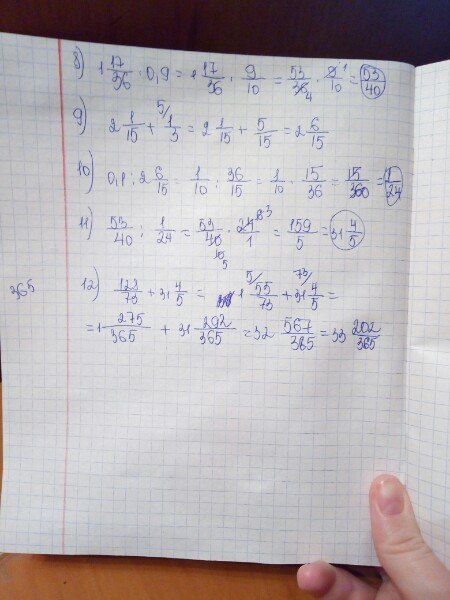 8) 1 17/36 · 0,9 = 1 17/36 · 9/10 = 53/36 4 · 9 1/10 = 53/40
9) 2 1/15 + 5/ 1/3 = 2 1/15 + 5/15 = 2 6/15
10) 0,1 : 2 6/15 = 1/10 : 36/15 = 1/10 · 15/36 = 15/360 = 1/24
11) 53/40 : 1/24 = 53/40 10 5 · 24 6 3/1 = 159/5 = 31 4/5
365
12) 128/73 + 31 4/5 = 1 5/ 55/73 + 73/ 31 4/5 =
= 1 275/365 + 31 292/365 = 32 567/365 = 33 202/365